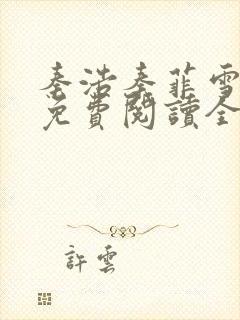 秦浩秦菲雪
免費閱讀全
許雲